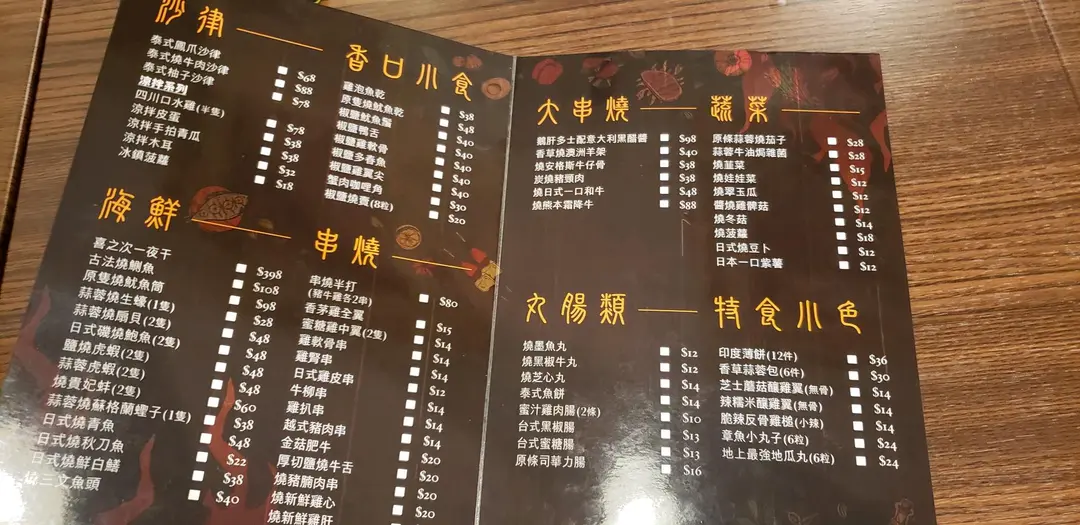 沙律
泰式鳳爪沙律 $68
泰式燒牛肉沙律 $88
泰式柚子沙律 $78
涼拌系列
四川口水雞(半隻) $78
涼拌皮蛋 $38
涼拌手拍青瓜 $38
涼拌木耳 $32
冰鎮菠蘿 $18
香口小食
雞泡魚乾 $38
原隻燒魷魚乾 $48
椒鹽魷魚鬚 $40
椒鹽鴨舌 $40
椒鹽雞軟骨 $40
椒鹽多春魚 $40
椒鹽雞翼尖 $40
蟹肉咖哩角 $30
椒鹽燒賣(8粒) $20
海鮮
喜之次一夜干 $398
古法燒鯛魚 $108
原隻燒魷魚筒 $98
蒜蓉燒生蠔(1隻) $28
蒜蓉燒扇貝(2隻) $48
日式磯燒鮑魚(2隻) $48
鹽燒虎蝦(2隻) $48
蒜蓉虎蝦(2隻) $48
燒貴妃蚌(2隻) $60
蒜蓉燒蘇格蘭蟶子(1隻) $48
日式燒青魚 $48
日式燒秋刀魚 $22
日式燒鮮白鱔 $38
三文魚頭 $40
串燒
串燒半打
(豬牛雞各2串) $80
香茅雞全翼 $15
蜜糖雞中翼(2隻) $14
雞軟骨串 $14
雞腎串 $14
日式雞皮串 $12
牛柳串 $14
雞扒串 $14
越式豬肉串 $14
金菇肥牛 $20
厚切鹽燒牛舌 $20
燒豬腩肉串 $20
燒新鮮雞心 $20
燒新鮮雞肝
大串燒
鵝肝多士配意大利黑醋醬 $98
香草燒澳洲羊架 $40
燒安格斯牛仔骨 $48
炭燒豬頸肉 $38
燒日式一口和牛 $48
燒熊本霜降牛 $88
蔬菜
原條蒜蓉燒茄子 $28
蒜蓉牛油焗雜菌 $28
燒韮菜 $15
燒娃娃菜 $12
燒翠玉瓜 $12
醬燒雞髀菇 $12
燒冬菇 $14
燒菠蘿 $18
日式燒豆卜 $12
日本一口紫薯 $12
丸腸類
燒墨魚丸 $12
燒黑椒牛丸 $12
燒芝心丸 $14
泰式魚餅 $14
蜜汁雞肉腸(2條) $10
台式黑椒腸 $13
台式蜜糖腸 $13
原條司華力腸 $16
特食小色
印度薄餅(12件) $36
香草蒜蓉包(6件) $30
芝士蘑菇釀雞翼(無骨) $14
辣糯米釀雞翼(無骨) $14
脆辣反骨雞槌(小辣) $14
章魚小丸子(6粒) $24
地上最強地瓜丸(6粒) $24